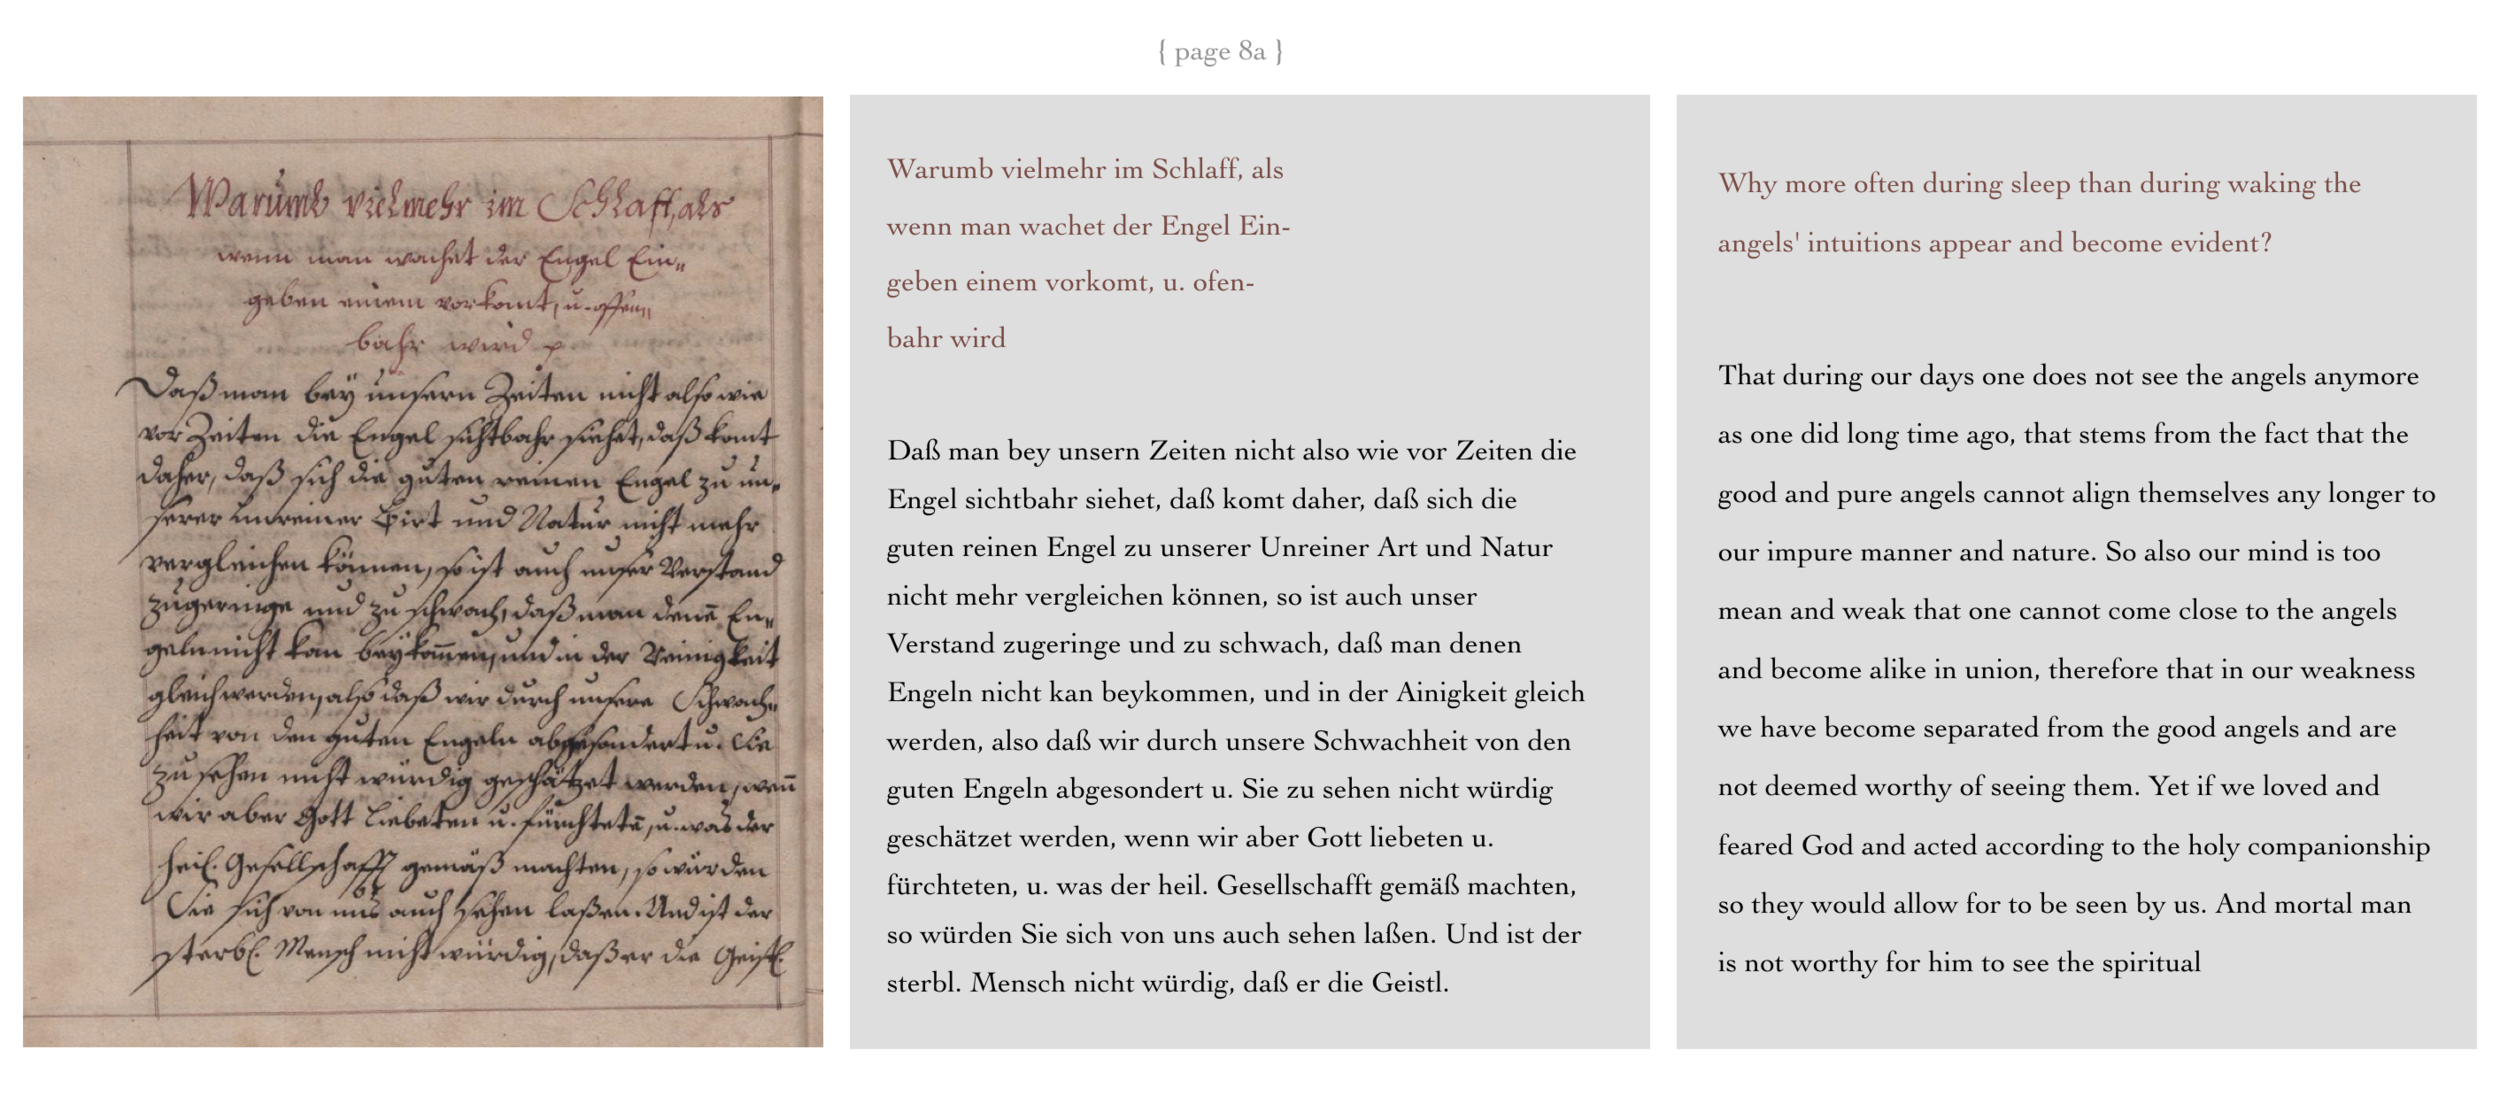 { page 8a }
Warumb vielmehr im Schlaff, als
wenn man wachet der Engel Ein„
geben einem vorkomt, u. offen„
bahr wird
Daß man bey unsern Zeiten nicht also wie
vor Zeiten die Engel sichtbahr siehet, daß komt
daher, daß sich die guten reinen Engel zu un„
serer unreiner Art und Natur nicht mehr
vergleichen können, so ist auch unser Verstand
zugeringe und zu schwach, daß man denē En„
geln nicht kan beykom̄en, und in der Reinigkeit
gleich werden, also daß wir durch unsere Schwach„
heit von den guten Engeln abgesondert u. Sie
zu sehen nicht würdig geschätzet werden, wen̄
wir aber Gott liebeten u. fürchtetē, u. was der
heil. Gesellschafft gemäß machten, so würden
Sie sich von uns auch sehen laßen. Und ist der
sterbl. Mensch nicht würdig, daß er die Geistl.
Warumb vielmehr im Schlaff, als
wenn man wachet der Engel Ein-
geben einem vorkomt, u. ofen-
bahr wird
Daß man bey unsern Zeiten nicht also wie vor Zeiten die
Engel sichtbahr siehet, daß komt daher, daß sich die
guten reinen Engel zu unserer Unreiner Art und Natur
nicht mehr vergleichen können, so ist auch unser
Verstand zugeringe und zu schwach, daß man denen
Engeln nicht kan beykommen, und in der Ainigkeit gleich
werden, also daß wir durch unsere Schwachheit von den
guten Engeln abgesondert u. Sie zu sehen nicht würdig
geschätzet werden, wenn wir aber Gott liebeten u.
fürchteten, u. was der heil. Gesellschafft gemäß machten,
so würden Sie sich von uns auch sehen laßen. Und ist der
sterbl. Mensch nicht würdig, daß er die Geistl.
Why more often during sleep than during waking the
angels' intuitions appear and become evident?
That during our days one does not see the angels anymore
as one did long time ago, that stems from the fact that the
good and pure angels cannot align themselves any longer to
our impure manner and nature. So also our mind is too
mean and weak that one cannot come close to the angels
and become alike in union, therefore that in our weakness
we have become separated from the good angels and are
not deemed worthy of seeing them. Yet if we loved and
feared God and acted according to the holy companionship
so they would allow for to be seen by us. And mortal man
is not worthy for him to see the spiritual